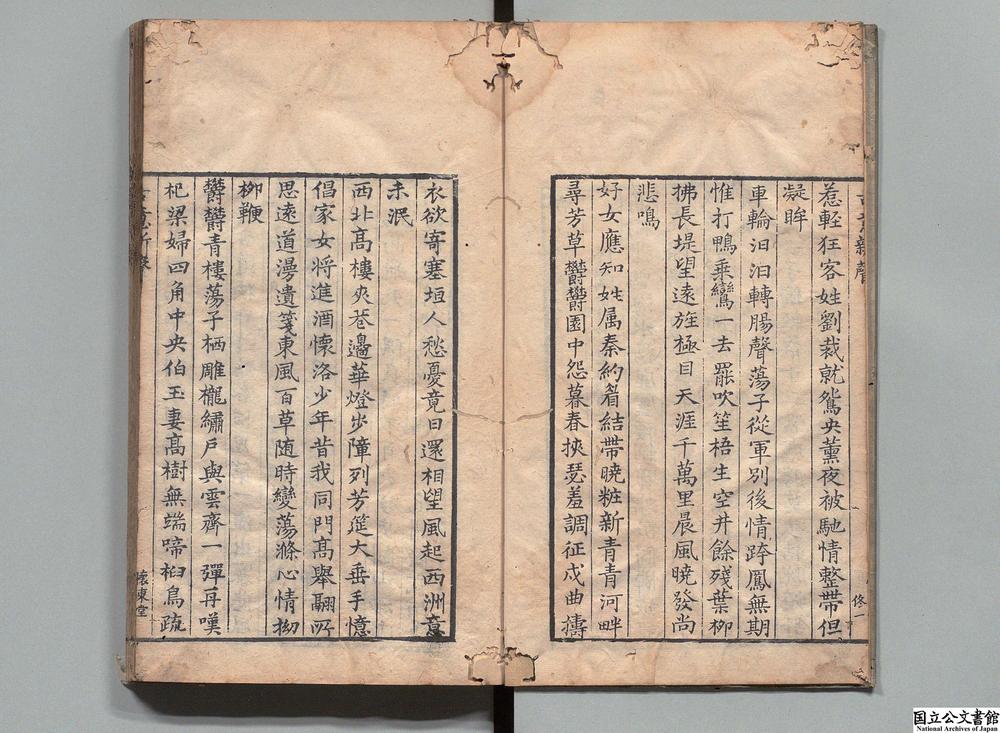 惹輕狂客姓劉裁就鴛央薰夜被馳情整帶但
凝眸
車輪汩汩轉腸聲蕩子從軍別後情跨鳳無期
惟打鴨乗鸞一去罷吹笙梧生空井餘殘葉柳
拂長堤望遠旌極目天涯千萬里晨風曉發尚
悲鳴
好女應知姓属秦約眉結帶曉粧新青青河畔
尋芳草欝欝園中怨暮春挾瑟羞調征戍曲擣
衣欲寄塞垣人愁憂竟日還相望風起西洲意
未泯
西北高樓夾巷邊華燈步障列芳筵大垂手憶
倡家女將進酒懷洛少年昔我同門高舉翮所
思遠道漫遺箋東風百草随時變蕩滌心情拗
柳鞭
欝欝青樓蕩子栖雕櫳繡戶與雲齊一彈再嘆
杞梁婦四角中央伯玉妻高樹無端啼桕鳥疏
懷東堂
国立公文書館
National Archives of Japan